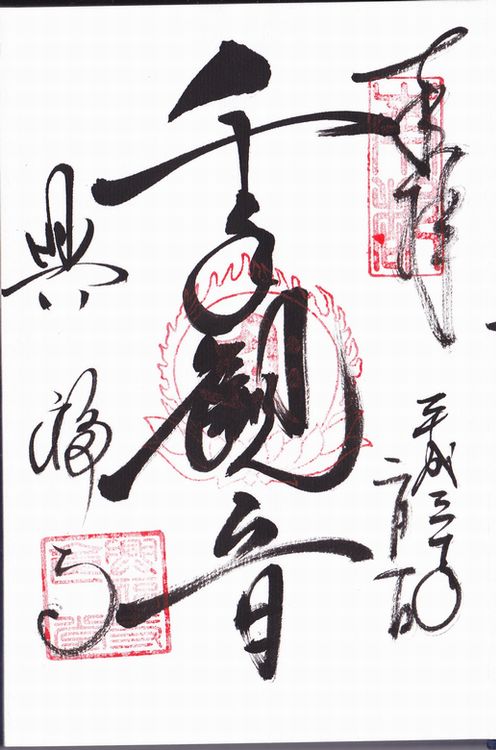 奉拝
平成三十年
二月一日
千手観音
興福寺